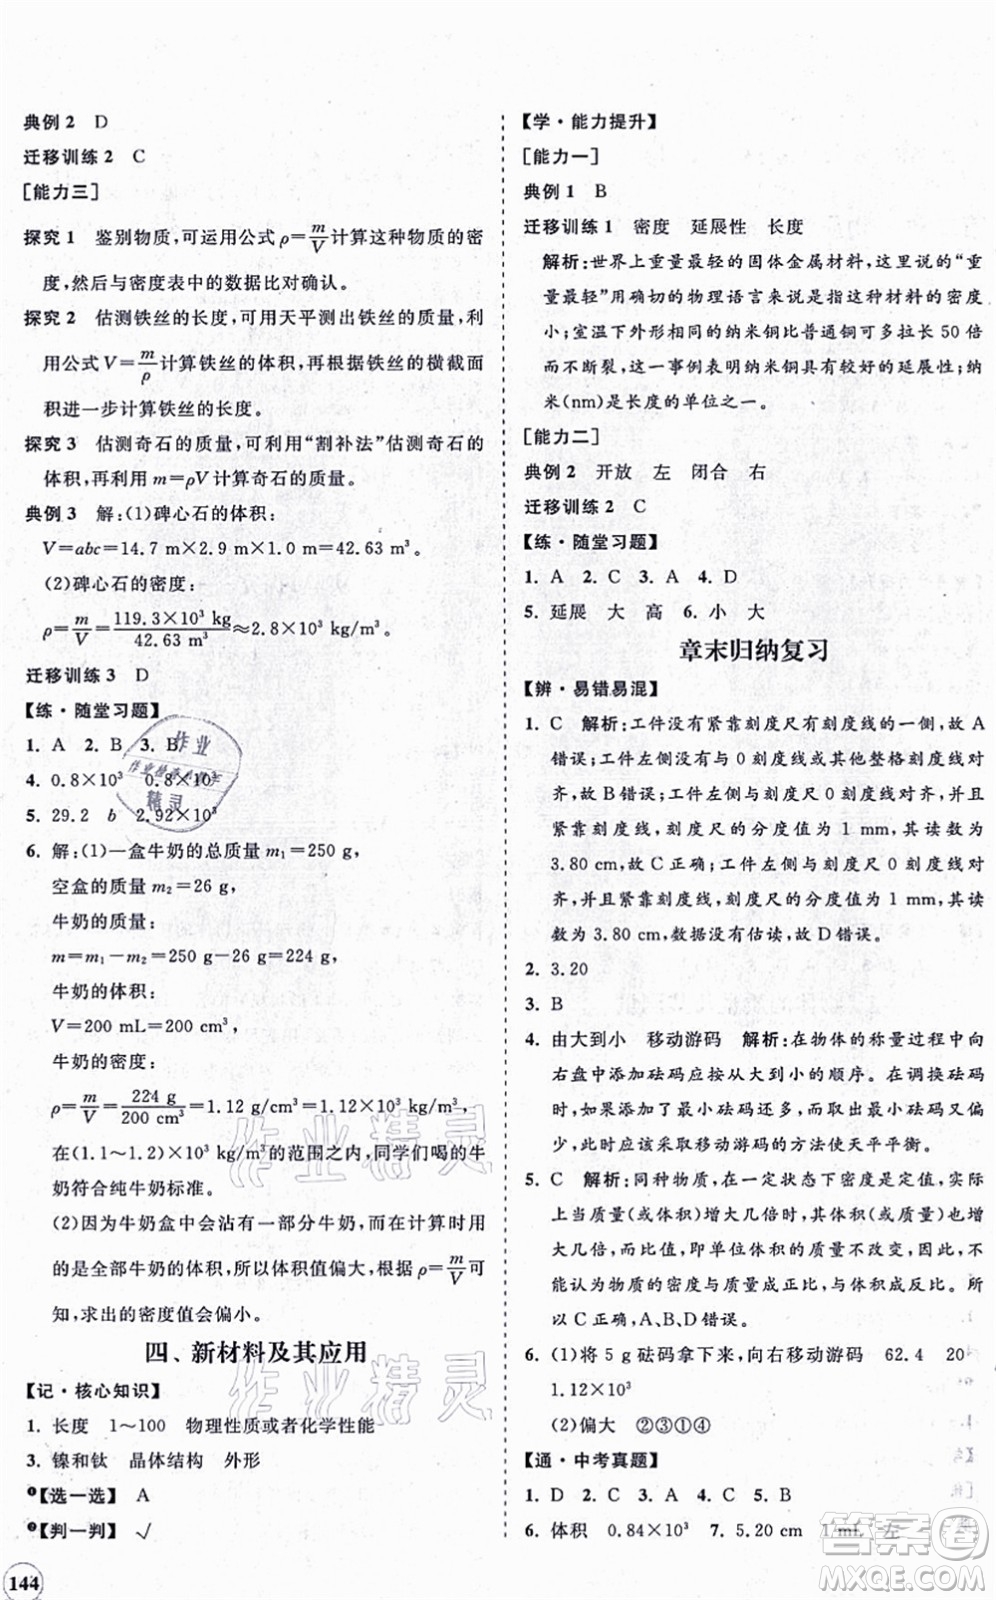 典例 2 D
迁移训练 2 C
[能力三]
探究 1 鉴别物质,可运用公式 ρ=m/V 计算这种物质的密
度,然后与密度表中的数据比对确认。
探究 2 估测铁丝的长度,可用天平测出铁丝的质量,利
用公式 V=m/ρ 计算铁丝的体积,再根据铁丝的横截面
面积进一步计算铁丝的长度。
探究 3 估测奇石的质量,可利用“割补法”估测奇石的
体积,再利用 m=ρV 计算奇石的质量。
典例 3 解:(1)碑心石的体积:
V=abc=14.7 m×2.9 m×1.0 m=42.63 m³。
(2)碑心石的密度:
ρ=m/V=119.3×10³ kg/42.63 m³≈2.8×10³ kg/m³。
迁移训练 3 D
【练·随堂习题】
1. A 2. B 3. B
4. 0.8×10³ 0.8×10³
5. 29.2 b 2.92×10³
6. 解:(1)一盒牛奶的总质量 m₁=250 g,
空盒的质量 m₂=26 g,
牛奶的质量:
m=m₁-m₂=250 g-26 g=224 g,
牛奶的体积:
V=200 mL=200 cm³,
牛奶的密度:
ρ=m/V=224 g/200 cm³=1.12 g/cm³=1.12×10³ kg/m³,
在(1.1~1.2)×10³ kg/m³的范围之内,同学们喝的牛
奶符合纯牛奶标准。
(2)因为牛奶盒中会沾有一部分牛奶,而在计算时用的
是全部牛奶的体积,所以体积值偏大,根据 ρ=m/V 可
知,求出的密度值会偏小。
四、新材料及其应用
【记·核心知识】
1. 长度 1~100 物理性质或者化学性能
3. 镍和钛 晶体结构 外形
❶【选一选】 A
❷【判一判】 √
144
【学·能力提升】
[能力一]
典例 1 B
迁移训练 1 密度 延展性 长度
解析:世界上重量最轻的固体金属材料,这里的“重
量最轻”用确切的物理语言来说是指这种材料的密度
小;室温下外形相同的纳米铜比普通铜可多拉长 50 倍
而不断裂,这一事例表明纳米铜具有较好的延展性;纳
米(nm)是长度的单位之一。
[能力二]
典例 2 开放 左 闭合 右
迁移训练 2 C
【练·随堂习题】
1. A 2. C 3. A 4. D
5. 延展 大 高 6. 小 大
章末归纳复习
【辨·易错易混】
1. C 解析:工件没有紧靠刻度尺有刻度线的一侧,故 A
错误;工件左侧没有与刻度尺的 0 刻度线对齐,
故 B 错误;工件左侧与刻度尺 0 刻度线对齐,并且
紧靠刻度线,刻度尺的分度值为 1 mm,所以读数是
3.80 cm,故 C 正确;工件左侧与刻度尺 0 刻度线对
齐,并且紧靠刻度线,刻度尺的分度值为 1 mm,所以
读数是 3.80 cm,数据没有估读,故 D 错误。
2. 3.20
3. B
4. 由大到小 移动游码 解析:在物体的称量过程中向
右盘中添加砝码要从大到小的顺序。在调换砝码
时,如果遇到添加了最小砝码还多,去掉最小砝码又少
些,此时应该采取移动游码的方法使天平平衡。
5. C 解析:同种物质,在一定状态下密度是定值,实际
上当质量(或体积)增大几倍时,其体积(或质量)也增
大几倍,而比值,即单位体积的质量不改变,因此不能
认为物质的密度与质量成正比,与体积成反比。所
以 C 正确,A、B、D 错误。
6. (1)将 5 g 砝码拿下来,向右移动游码 62.4 20
1.12×10³
(2)偏大 ②③①④
【通·中考真题】
1. D 2. C 3. B 4. D 5. A
6. 体积 0.84×10³ 7. 5.20 cm 1 mL 左
作业精灵
作业精灵
答案圈
MXQE.COM